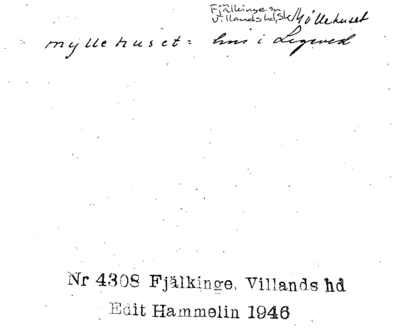 Fjälkinge sn
Villands hd, Sk. Möllehuset
myllehuset: hus i Legeved
Nr 4308 Fjälkinge, Villands hd
Edit Hammelin 1946